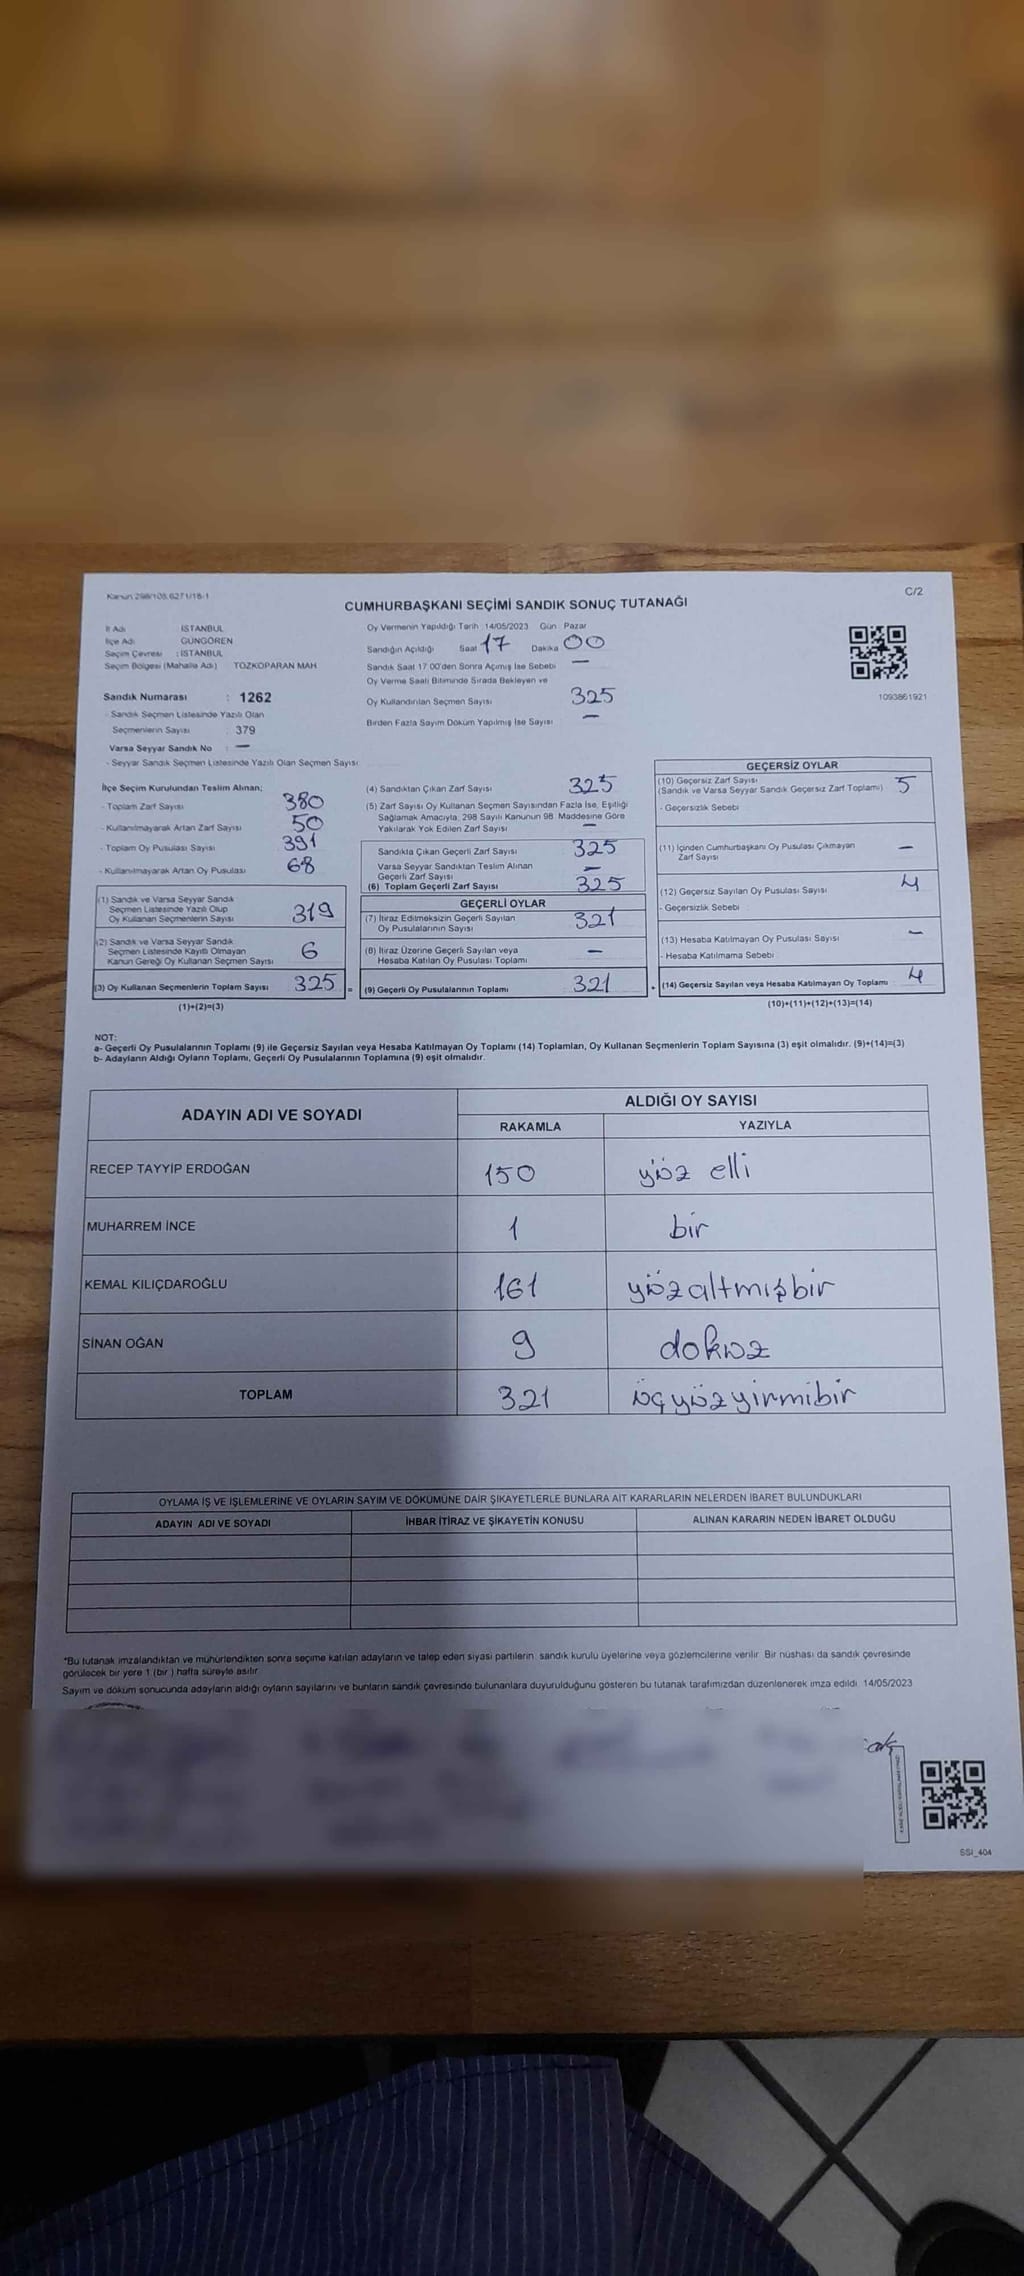 Kanun 298/105,6271/18-1
C/2
CUMHURBAŞKANI SEÇİMİ SANDIK SONUÇ TUTANAĞI
İl Adı : İSTANBUL
İlçe Adı : GÜNGÖREN
Seçim Çevresi : İSTANBUL
Seçim Bölgesi (Mahalle Adı) TOZKOPARAN MAH
Sandık Numarası : 1262
- Sandık Seçmen Listesinde Yazılı Olan
Seçmenlerin Sayısı : 379
Varsa Seyyar Sandık No : —
- Seyyar Sandık Seçmen Listesinde Yazılı Olan Seçmen Sayısı
Oy Vermenin Yapıldığı Tarih :14/05/2023 Gün : Pazar
Sandığın Açıldığı Saat 17 Dakika 00
Sandık Saat 17.00'den Sonra Açılmış İse Sebebi —
Oy Verme Saati Bitiminde Sırada Bekleyen ve
Oy Kullandırılan Seçmen Sayısı 325
Birden Fazla Sayım Döküm Yapılmış İse Sayısı —
1093861921
İlçe Seçim Kurulundan Teslim Alınan;
- Toplam Zarf Sayısı 380
- Kullanılmayarak Artan Zarf Sayısı 50
- Toplam Oy Pusulası Sayısı 391
- Kullanılmayarak Artan Oy Pusulası 68
(1) Sandık ve Varsa Seyyar Sandık
Seçmen Listesinde Yazılı Olup
Oy Kullanan Seçmenlerin Sayısı 319
(2) Sandık ve Varsa Seyyar Sandık
Seçmen Listesinde Kayıtlı Olmayan
Kanun Gereği Oy Kullanan Seçmen Sayısı 6
(3) Oy Kullanan Seçmenlerin Toplam Sayısı 325 =
(1)+(2)=(3)
(4) Sandıktan Çıkan Zarf Sayısı 325
(5) Zarf Sayısı Oy Kullanan Seçmen Sayısından Fazla İse, Eşitliği
Sağlamak Amacıyla, 298 Sayılı Kanunun 98. Maddesine Göre
Yakılarak Yok Edilen Zarf Sayısı —
Sandıkta Çıkan Geçerli Zarf Sayısı 325
Varsa Seyyar Sandıktan Teslim Alınan
Geçerli Zarf Sayısı —
(6) Toplam Geçerli Zarf Sayısı 325
GEÇERLİ OYLAR
(7) İtiraz Edilmeksizin Geçerli Sayılan
Oy Pusulalarının Sayısı 321
(8) İtiraz Üzerine Geçerli Sayılan veya
Hesaba Katılan Oy Pusulası Toplamı —
(9) Geçerli Oy Pusulalarının Toplamı 321 +
GEÇERSİZ OYLAR
(10) Geçersiz Zarf Sayısı
(Sandık ve Varsa Seyyar Sandık Geçersiz Zarf Toplamı) 5
- Geçersizlik Sebebi
(11) İçinden Cumhurbaşkanı Oy Pusulası Çıkmayan
Zarf Sayısı —
(12) Geçersiz Sayılan Oy Pusulası Sayısı 4
- Geçersizlik Sebebi
(13) Hesaba Katılmayan Oy Pusulası Sayısı —
- Hesaba Katılmama Sebebi
(14) Geçersiz Sayılan veya Hesaba Katılmayan Oy Toplamı 4
(10)+(11)+(12)+(13)=(14)
NOT:
a- Geçerli Oy Pusulalarının Toplamı (9) ile Geçersiz Sayılan veya Hesaba Katılmayan Oy Toplamı (14) Toplamları, Oy Kullanan Seçmenlerin Toplam Sayısına (3) eşit olmalıdır. (9)+(14)=(3)
b- Adayların Aldığı Oyların Toplamı, Geçerli Oy Pusulalarının Toplamına (9) eşit olmalıdır.
ADAYIN ADI VE SOYADI
ALDIĞI OY SAYISI
RAKAMLA YAZIYLA
RECEP TAYYİP ERDOĞAN 150 yüz elli
MUHARREM İNCE 1 bir
KEMAL KILIÇDAROĞLU 161 yüzaltmışbir
SİNAN OĞAN 9 dokuz
TOPLAM 321 üçyüzyirmibir
OYLAMA İŞ VE İŞLEMLERİNE VE OYLARIN SAYIM VE DÖKÜMÜNE DAİR ŞİKAYETLERLE BUNLARA AİT KARARLARIN NELERDEN İBARET BULUNDUKLARI
ADAYIN ADI VE SOYADI İHBAR İTİRAZ VE ŞİKAYETİN KONUSU ALINAN KARARIN NEDEN İBARET OLDUĞU
*Bu tutanak imzalandıktan ve mühürlendikten sonra seçime katılan adayların ve talep eden siyasi partilerin sandık kurulu üyelerine veya gözlemcilerine verilir. Bir nüshası da sandık çevresinde
görülecek bir yere 1 (bir ) hafta süreyle asılır
Sayım ve döküm sonucunda adayların aldığı oyların sayılarını ve bunların sandık çevresinde bulunanlara duyurulduğunu gösteren bu tutanak tarafımızdan düzenlenerek imza edildi. 14/05/2023
SSI_404